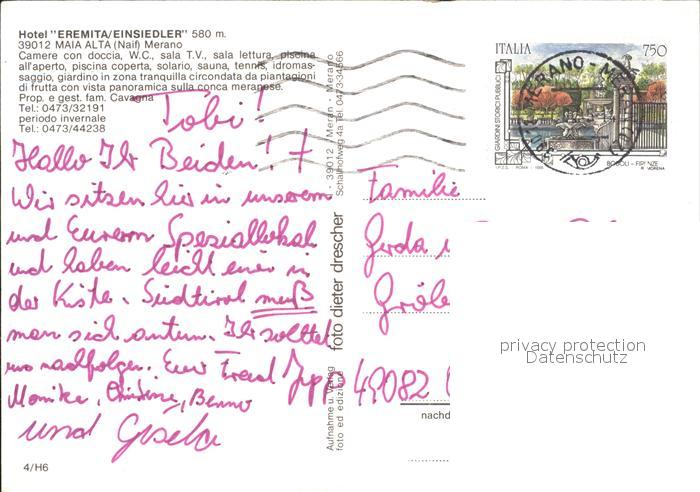 Hotel "EREMITA/EINSIEDLER" 580 m.
39012 MAIA ALTA (Naif) Merano
Camere con doccia, W.C., sala T.V., sala lettura, piscina
all'aperto, piscina coperta, solario, sauna, tennis, idromas-
saggio, giardino in zona tranquilla circondata da piantagioni
di frutta con vista panoramica sulla conca meranese.
Prop. e gest. fam. Cavagna
Tel.: 0473/32191
periodo invernale
Tel.: 0473/44238
Tobi!
Hallo Ihr Beiden!
Wir sitzen hier in unserem
und Eurem Speziallokal
und haben leicht einen in
der Kiste. Südtirol muß
man sich antun. Ihr solltet
uns nachfolgen. Euer Freund
Monika, Christine, Benno
und Gisela
4/H6
39012 - Meran - Merano
Schallhofweg 4a Tel. 0473-34566
foto dieter drescher
Aufnahme u. Verlag
foto ed edizione
ITALIA 750
GIARDINI STORICI PUBBLICI
BOBOLI - FIRENZE
I.P.Z.S. ROMA
MERANO
Familie
Gerda
49082
nachd
privacy protection
Datenschutz